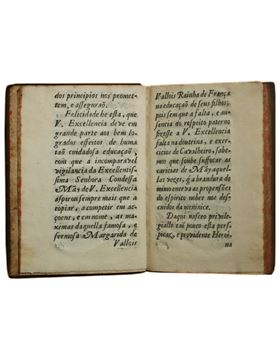 dos principios nos promettem, e assegurão.
Felicidade he esta, que
V. Excellencia deve em
grande parte aos bem logrados
effeitos de huma
taõ cuidadosa educaçaõ,
com que a incomparavel
vigilancia da Excellentissima
Senhora Condessa
Mãy de V. Excellencia
aspirou sempre mais que a
copiar, a competir em acçoens,
e em nome, as maximas
daquella famosa, e
fermosa Margarida de
Vallois
Vallois Rainha de França
na educaçaõ de seus filhos;
pois sem que a falta, e ausencia
do respeito paterno
fizesse a V. Excellencia
falta na doutrina, e exercicios
de Cavalheiro, sabemos
que soube suffocar as
caricias de Mãy aquellas
vezes, q̃ a brandura
em o espirito nobre de seu
Daqui nosceo privilegialla
tao pouco esta perspicaz,
e providente Heroina
na